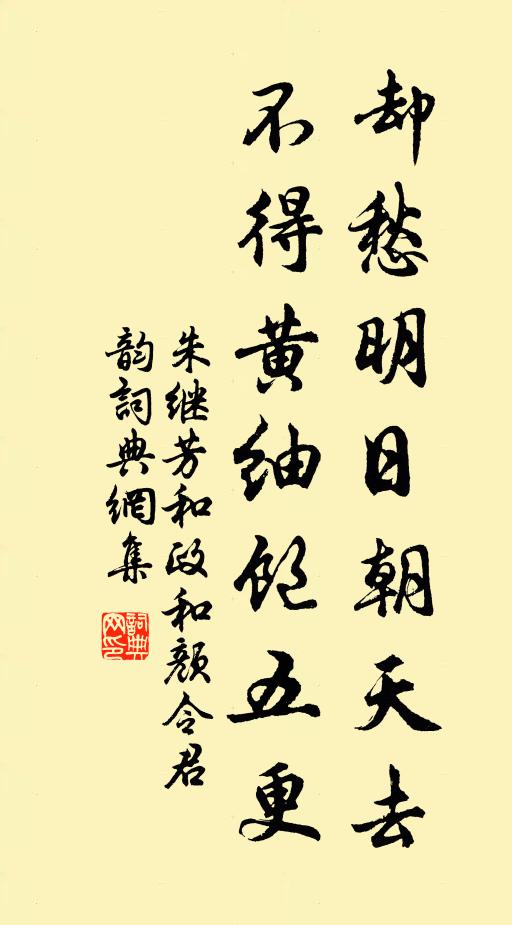 却愁明日朝天去
不得黄紬饱五更
朱继芳和政和颜令君
韵詞典網集
詞典
网印